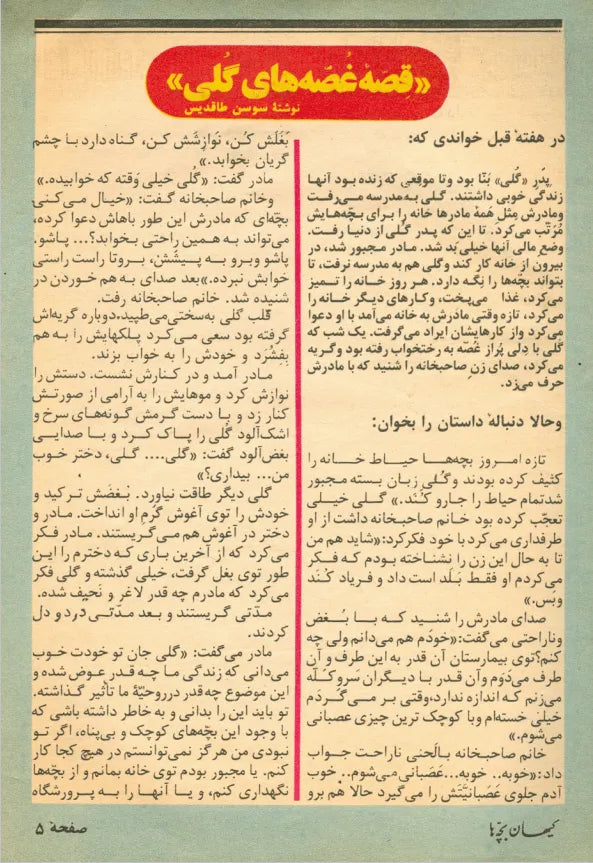 «قصهٔ غُصّه‌های گُلی»
نوشتهٔ سوسن طاقدیس
در هفتهٔ قبل خواندی که:
پدَرِ «گُلی» بَنّا بود و تا موقعی که زنده بود آنها
زندگی خوبی داشتند. گلی به مدرسه می‌رفت
و مادرش مِثل همهٔ مادرها خانه را برای بچّه‌هایش
مُرَتّب می‌کرد. تا این که پدر گُلی از دنیا رفت.
وضع مالی آنها خیلی بَد شد. مادر مجبور شد، در
بیرون از خانه کار کند و گلی هم به مدرسه نرفت، تا
بتواند بچّه‌ها را نگه دارد. هر روز خانه را تمیز
می‌کرد، غذا می‌پخت، و کارهای دیگر خانه را
می‌کرد، تازه وقتی مادرش به خانه می‌آمد با او دعوا
می‌کرد و از کارهایشان ایراد می‌گرفت. یک شب که
گلی با دِلی پُر از غصّه به رختخواب رفته بود و گریه
می‌کرد، صدای زنِ صاحبخانه را شنید که با مادرش
حرف می‌زد.
و حالا دنبالهٔ داستان را بخوان:
تازه امروز بچه‌ها حیاط خانه را
کثیف کرده بودند و گُلی زبان بسته مجبور
شد تمام حیاط را جارو کُنَد.» گلی خیلی
تعجّب کرده بود خانم صاحبخانه داشت از او
طرفداری می‌کرد با خود فکر کرد: «شاید هم من
تا به حال این زن را نشناخته بودم که فکر
می‌کردم او فقط بَلَد است داد و فریاد کُنَد
و بَس.»
صدای مادرش را شنید که با بُغض
و ناراحتی می‌گفت: «خودَم هم می‌دانم ولی چه
کنم؟ توی بیمارستان آن قدر به این طرف و آن
طرف می‌دَوَم و آن قدر با دیگران سَر و کلّه
می‌زنم که اندازه ندارد، وقتی بر می‌گردَم
خیلی خسته‌ام و با کوچک ترین چیزی عصبانی
می‌شوم.»
خانم صاحبخانه با لَحنی ناراحت جواب
داد: «خوبه.. خوبه... عَصَبانی می‌شوم.. خوب
آدم جلوی عَصَبانیّتَش را می‌گیرد حالا هم برو
بَغَلَش کُن، نَوازِشَش کن، گناه دارد با چشم
گریان بخوابد.»
مادر گفت: «گُلی خیلی وَقته که خوابیده.»
و خانم صاحبخانه گفت: «خیال می‌کنی
بچّه‌ای که مادرش این طور باهاش دعوا کرده،
می‌تواند به همین راحتی بخوابد؟... پاشو.
پاشو و برو به پیشَش، برو تا راست راستی
خوابش نبرده.» بعد صدای به هم خوردن در
شنیده شد. خانم صاحبخانه رفت.
قلب گلی به سختی می‌طپید. دوباره گریه‌اش
گرفته بود سعی می‌کرد پلکهایش را به هم
بِفِشُرَد و خودش را به خواب بزند.
مادر آمد و در کنارش نشست. دستش را
نوازش کرد و موهایش را به آرامی از صورتش
کنار زد و با دست گرمش گونه‌های سرخ و
اشک‌آلود گُلی را پاک کرد و با صدایی
بغض‌آلود گفت: «گلی.... گلی، دختر خوب
من... بیداری؟»
گلی دیگر طاقت نیاورد. بُغضَش ترکید و
خودش را توی آغوش گرمِ او انداخت. مادر و
دختر در آغوش هم می‌گریستند. مادر فکر
می‌کرد که از آخرین باری که دخترم را این
طور توی بغل گرفت، خیلی گذشته و گلی فکر
می‌کرد که مادرم چه قدر لاغر و نَحیف شده.
مدّتی گریستند و بعد مدّتی درد و دل
کردند.
مادر می‌گفت: «گلی جان تو خودت خوب
می‌دانی که زندگی ما چه قدر عوض شده و
این موضوع چه قدر در روحیّهٔ ما تأثیر گذاشته.
تو باید این را بدانی و به خاطر داشته باشی که
با وجود این بچّه‌های کوچک و بی‌پناه، اگر تو
نبودی من هرگز نمی‌توانستم در هیچ کجا کار
کنم. یا مجبور بودم توی خانه بمانم و از بچّه‌ها
نگهداری کنم، و یا آنها را به پرورشگاه
کیهان بچّه‌ها
صفحهٔ ۵